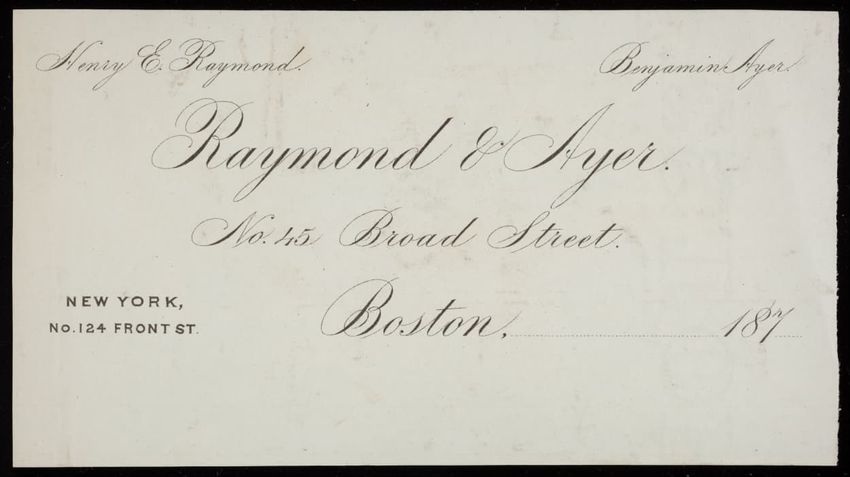 Henry E. Raymond. Benjamin Ayer.
Raymond & Ayer.
No. 45 Broad Street.
NEW YORK,
No. 124 FRONT ST.
Boston, 187